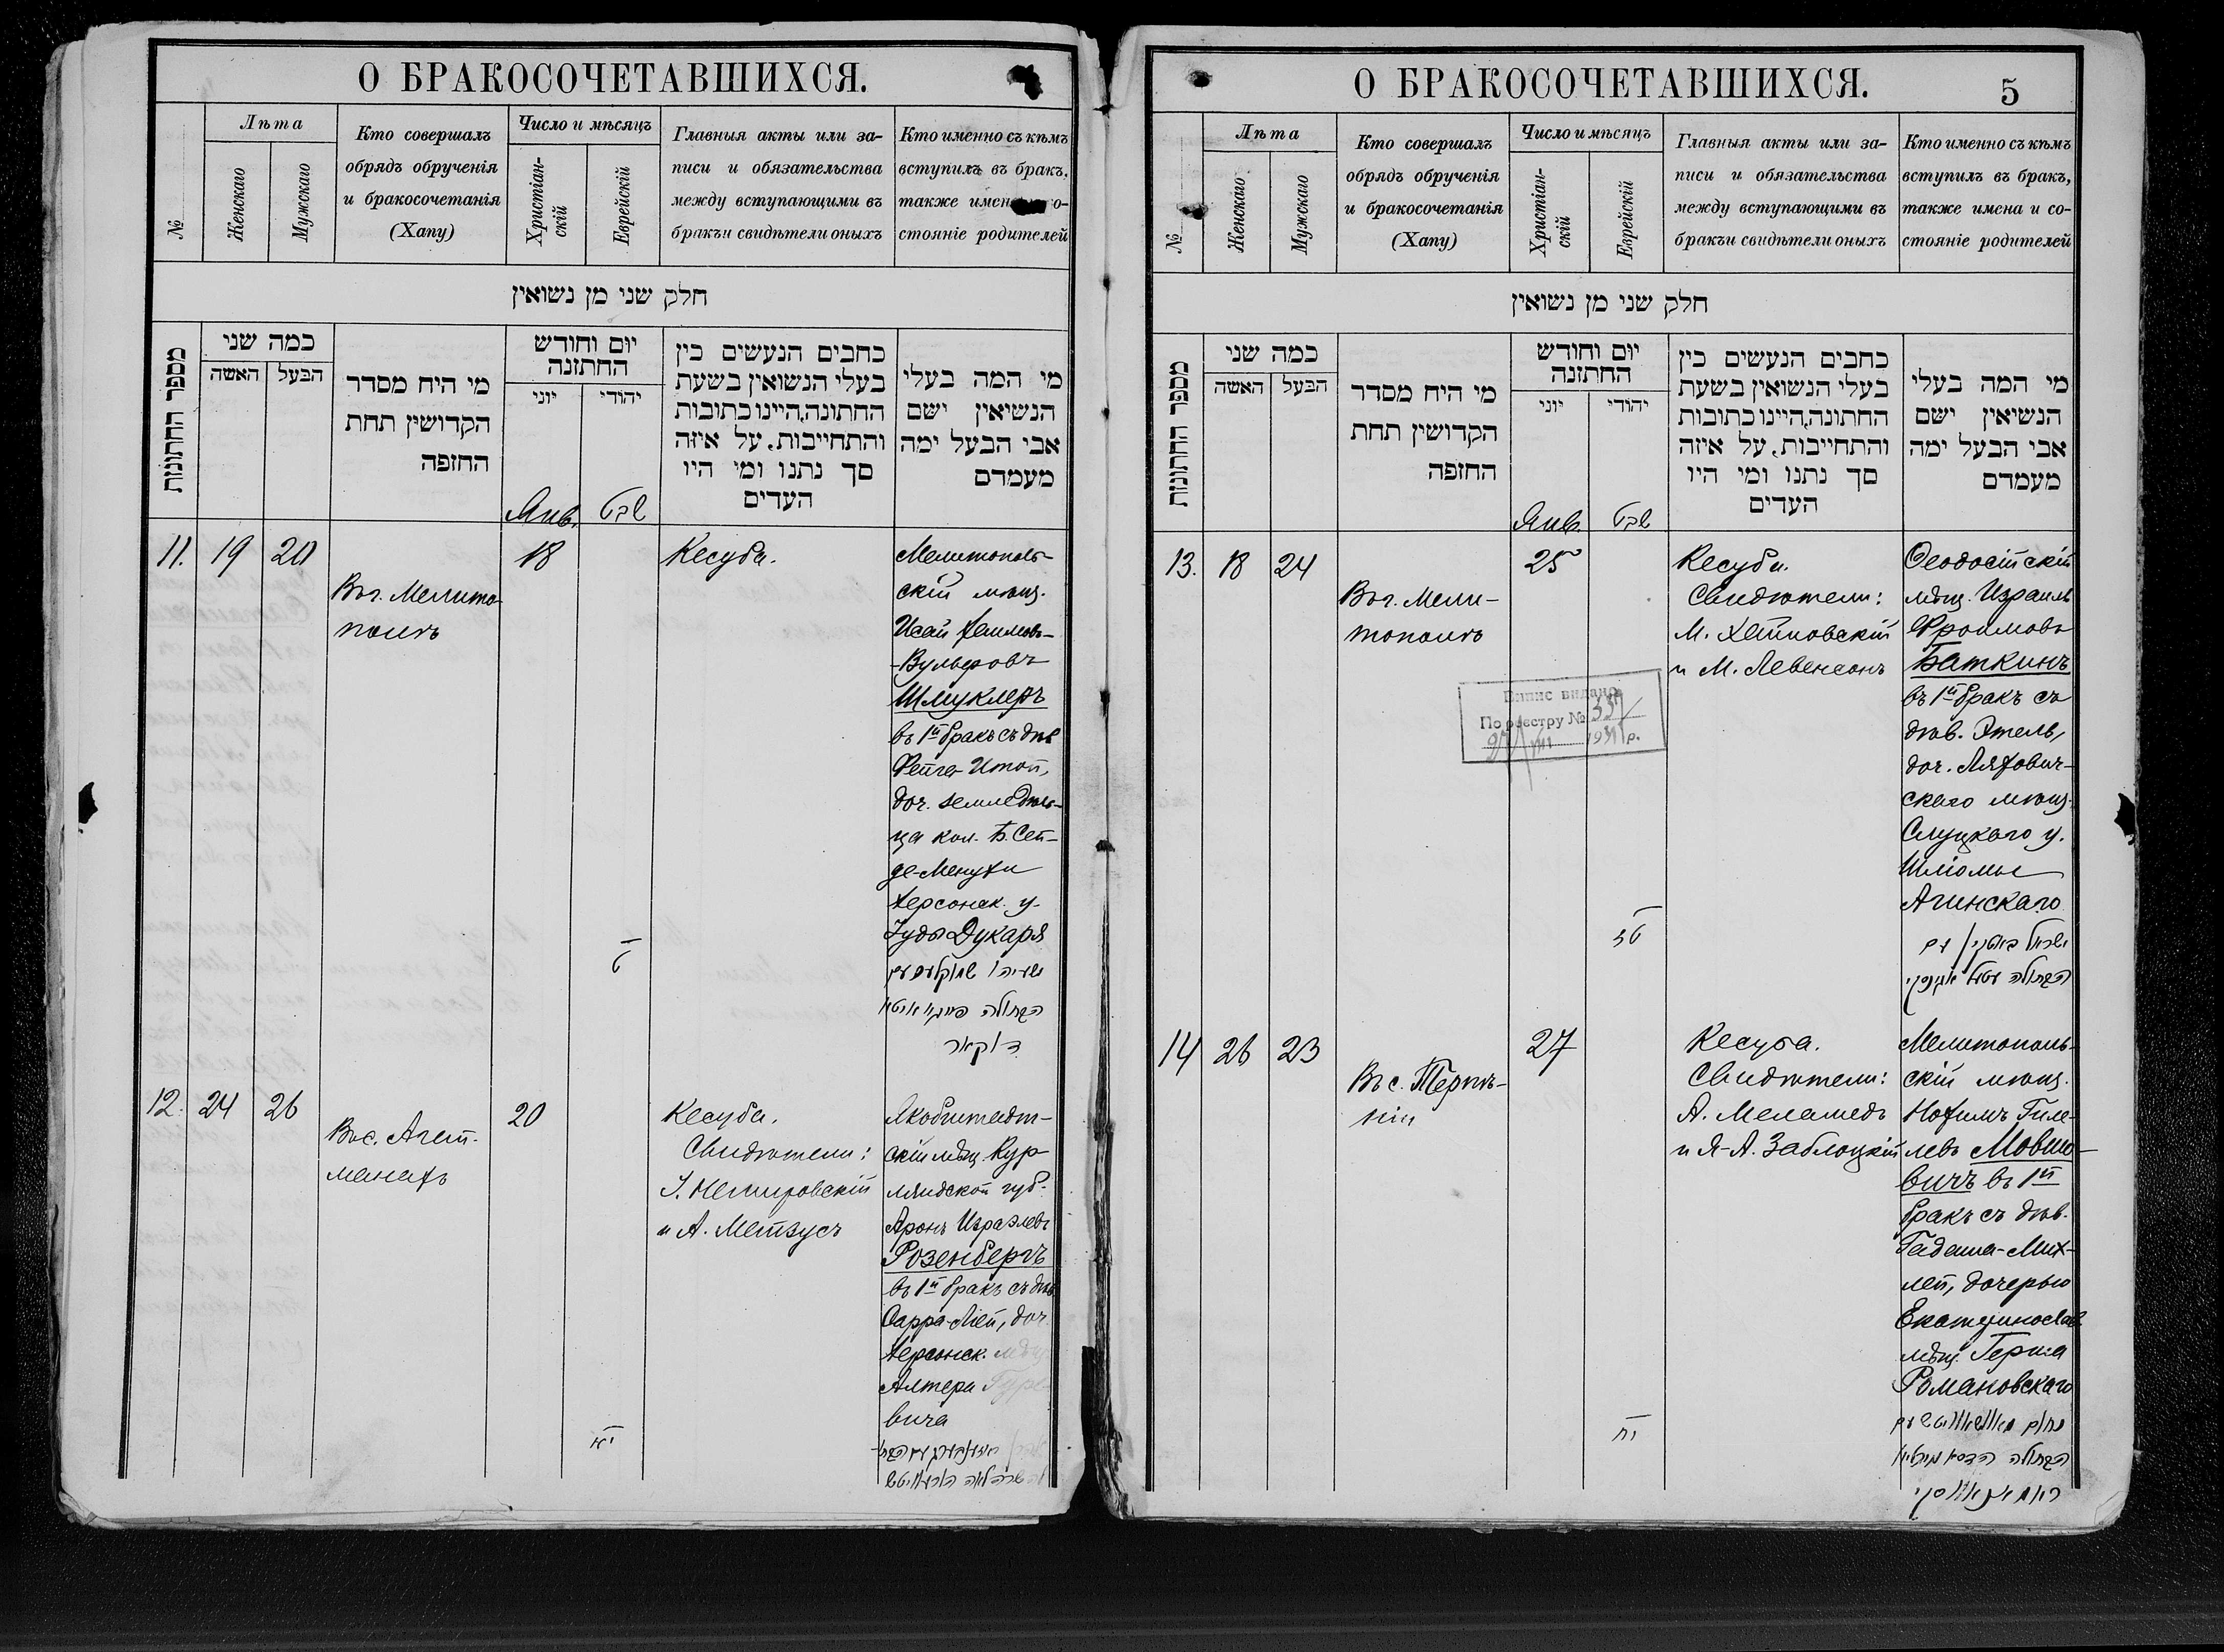 О БРАКОСОЧЕТАВШИХСЯ.
№
Лѣта
Женскаго
Мужскаго
Кто совершалъ
обрядъ обрученія
и бракосочетанія
(Хапу)
Число и мѣсяцъ
Христіан-
скій
Еврейскій
Главныя акты или за-
писи и обязательства
между вступающими въ
бракъи свидѣтели оныхъ
Кто именно съ кѣмъ
вступилъ въ бракъ,
также
стояніе родителей
חלק שני מן נשואין
מספר החתונות
כמה שני
האשה
הבעל
מי היח מסדר
הקדושין תחת
החופה
יום וחודש
החתונה
יוני
יהודי
כחבים הנעשים כין
בעלי הנשואין בשעת
החתונה,היינו כתובות
והתחייבות, על איזה
סך נתנו ומי היו
העדים
מי המה בעלי
הנשיאין ישם
אבי הבעל ימה
מעמדם
Янв.
שבט
11.
19
20
Въ г. Мелито-
полѣ
18
ט
Кесуба.
Мелитополь-
скій мѣщ.
Исай Хаимовъ-
-Вульфовъ
Шмуклеръ
въ 1й бракъ съ дѣв
Фейга-Итой,
доч. земледѣль-
ца кол. Б. Сей-
де-Менухи
Херсонск. у.
Іуды Дукаря
ישעיהו שמוקלער עם
הבתולה פייגא איטא
דוקאר
12.
24
26
Въ с. Агай-
манахъ
20
יא
Кесуба.
Свидѣтели:
І. Немировскій
и А. Мейзусъ
Якобштадт-
скій мѣщ. Кур-
ляндской губ.
Аронъ Израэлевъ
Розенбергъ
въ 1й бракъ съ дѣв.
Сарра-Леей, доч.
Херсонск. мѣщ
Алтера Гуре-
вича
שרה לאה
О БРАКОСОЧЕТАВШИХСЯ.
5
№
Лѣта
Женскаго
Мужскаго
Кто совершалъ
обрядъ обрученія
и бракосочетанія
(Хапу)
Число и мѣсяцъ
Христіан-
скій
Еврейскій
Главныя акты или за-
писи и обязательства
между вступающими въ
бракъи свидѣтели оныхъ
Кто именно съ кѣмъ
вступилъ въ бракъ,
также имена и со-
стояніе родителей
חלק שני מן נשואין
מספר החתונות
כמה שני
האשה
הבעל
מי היח מסדר
הקדושין תחת
החופה
יום וחודש
החתונה
יוני
יהודי
כחבים הנעשים כין
בעלי הנשואין בשעת
החתונה,היינו כתובות
והתחייבות, על איזה
סך נתנו ומי היו
העדים
מי המה בעלי
הנשיאין ישם
אבי הבעל ימה
מעמדם
Янв.
שבט
13.
18
24
Въ г. Мели-
тополѣ
25
טז
Кесуба.
Свидѣтели:
М. Хейповскій
и М. Левенсонъ
Випис видано
По реєстру №
193 р.
Ѳеодосійскій
мѣщ. Израиль
Фроимовъ
Баткинъ
въ 1й бракъ съ
дѣв. Этель,
доч. Ляхович-
скаго мѣщ.
Слуцкаго у.
Шліомы
Агинскаго
ישראל באטקין עם
הבתולה עטעל אגינסקי
14
26
23
Въ с. Терпѣ-
ніи
27
יח
Кесуба.
Свидѣтели:
А. Меламедъ
и Я-А. Заблоцкій
Мелитополь-
скій мѣщ.
Нохимъ Гиле-
левъ Мовшо-
вичъ въ 1й
бракъ съ дѣв.
Гадаша-Мих-
лей, дочерью
Екатеринослав.
мѣщ. Герша
Романовскаго
נחום מאוושאוויטש עם
הבתולה הדסא מיכליא
ראמאנאווסקי